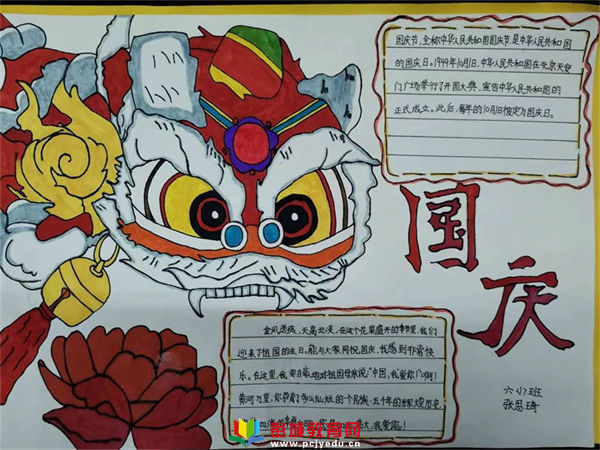 国庆节,全称中华人民共和国国庆节,是中华人民共和国
的国庆日。1949年10月1日,中华人民共和国在北京天安
门广场举行了开国大典,宣告中华人民共和国的
正式成立。此后,每年的10月1日被定为国庆日。
国庆
金风送爽,天高云淡,在这个花果盛开的季节里,我们
迎来了祖国的生日。能与大家同祝国庆,我感到非常快
乐。在这里,我要自豪地对祖国母亲说:"中国,我爱你!"啊!
黄河万里,你孕育了多么灿烂的个民族,五千年的辉煌历史,
大,我爱你!
六(1)班
张恩琦
番城教育网
www.pcjyedu.cn